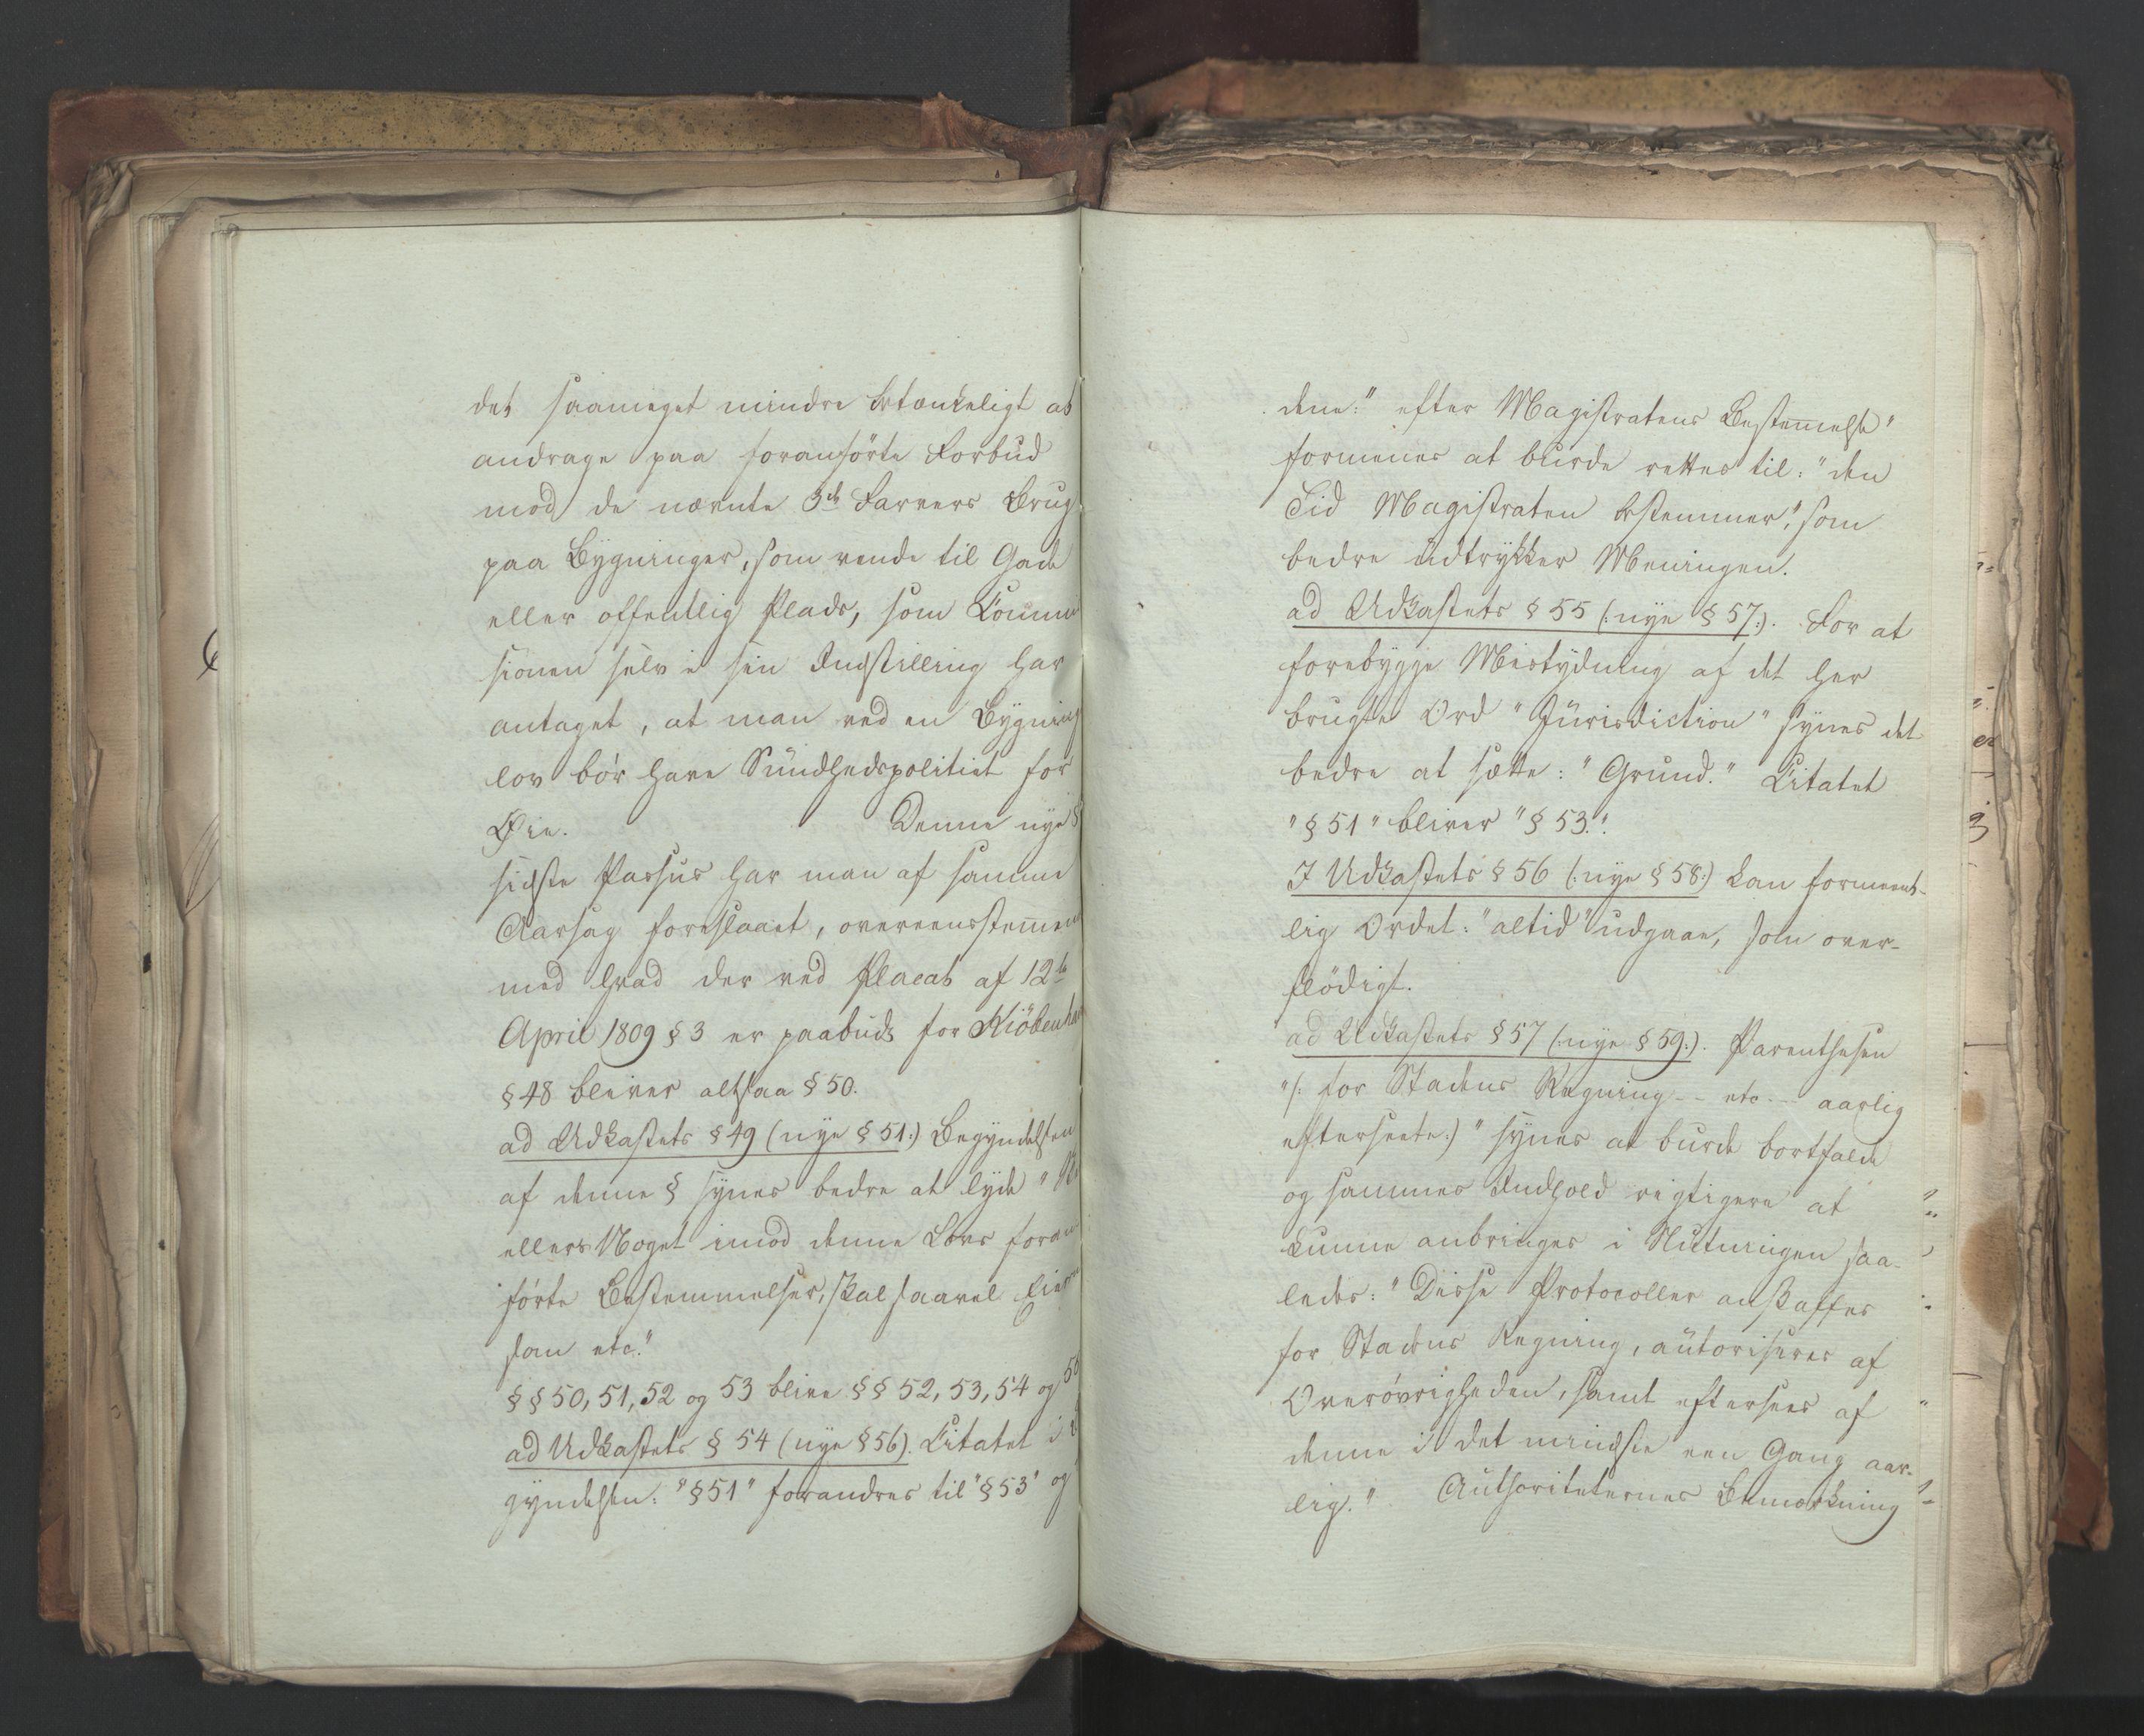 det saameget mindre betænkeligt at
andrage paa foranførte Forbud
mod de nævnte 3de Farvers Brug
paa Bygninger, som vende til Gade
eller offentlig Plads, som Commis
sionen selv i sin Indstilling har
antaget, at man ved en Bygnings
lov bør have Sundhedspolitiet for
Øie. Denne nye §
sidste Passus har man af samme
Aarsag foreslaaet, overeensstemmen
med hvad der ved Placat af 12te
April 1809 § 3 er paabudt for Kiöbenhav
§ 48 bliver altsaa § 50.
ad Udkastets § 49 (nye § 51.) Begyndelsen
af denne § synes bedre at lyde "
ellers Noget imod denne Lovs foran
førte Bestemmelser, skal saavel Eie
som etc."
§§ 50, 51, 52 og 53 blive §§ 52, 53, 54 og 55
ad Udkastets § 54 (nye § 56). Citatet i
gyndelsen: "§ 51" forandres til "§ 53" og
dene: "efter Magistratens Bestemmelse"
formenes at burde rettes til: "den
Tid Magistraten bestemmer," som
bedre udtrykker Meningen.
ad Udkastets § 55 (: nye § 57:). For at
forebygge Mistydning af det her
brugte Ord "Jurisdiction" synes det
bedre at sætte: "Grund." Citatet
"§ 51" bliver "§ 53.".
I Udkastets § 56 (: nye § 58:) kan formeent-
lig Ordet: "altid" udgaae, som over-
flödigt.
ad Udkastets § 57 (: nye § 59:). Parenthesen
"/: for Stadens Regning - - etc - - aarlig
efterseete:) " synes at burde bortfalde
og sammes Indhold rigtigere at
kunne anbringes i Slutningen saa-
ledes: "Disse Protocoller anskaffes
for Stadens Regning, autoriseres af
Overøvrigheden, samt eftersees af
denne i det mindste een Gang aar-
lig." Authoriteternes Bemærkning